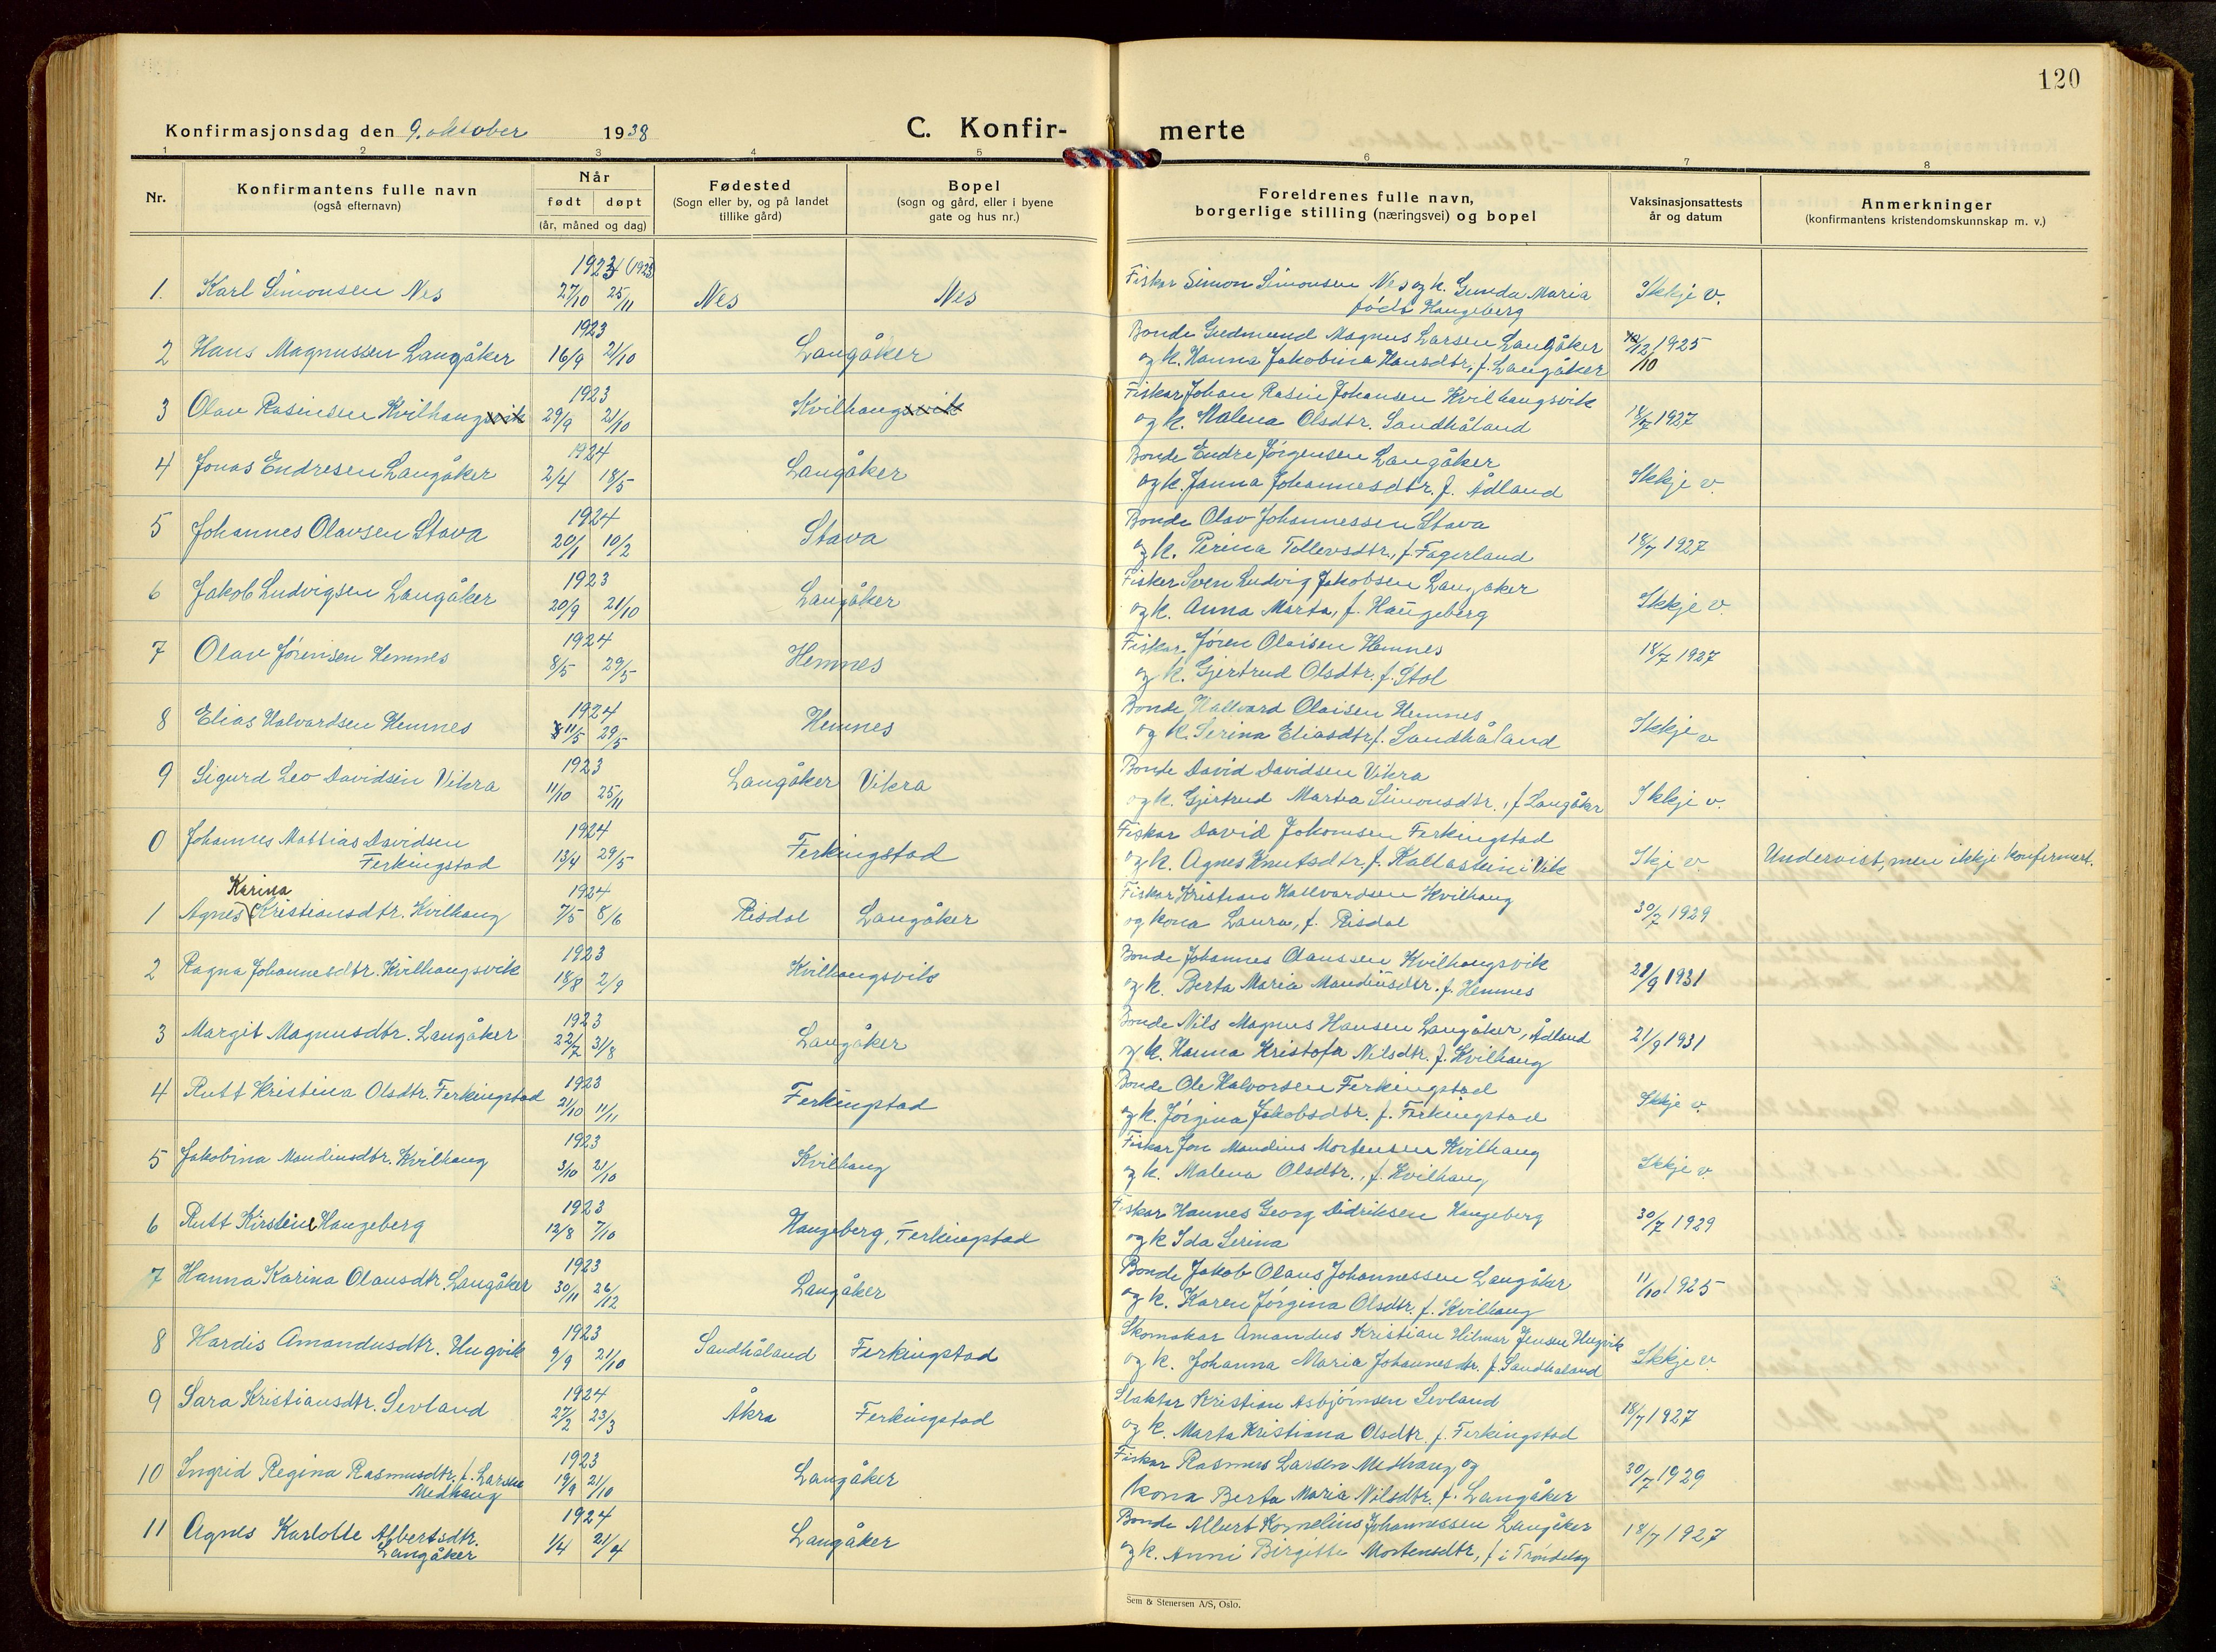 120
Konfirmasjonsdag den 9. oktober 1938
C. Konfir- merte
1 2 3 4 5 6 7 8
Nr.
Konfirmantens fulle navn
(også efternavn)
Når
født døpt
(år, måned og dag)
Fødested
(Sogn eller by, og på landet
tillike gård)
Bopel
(sogn og gård, eller i byene
gate og hus nr.)
Foreldrenes fulle navn,
borgerlige stilling (næringsvei) og bopel
Vaksinasjonsattests
år og datum
Anmerkninger
(konfirmantens kristendomskunnskap m. v.)
1923 (1923)
1. Karl Simonsen Nes 27/10 25/11 Nes Nes
Fisker Simon Simonsen Nes og k. Gunda Maria
født Haugeberg
Ikkje v.
1923
2 Hans Magnussen Langåker 16/9 21/10 Langåker
Bonde Gudmund Magnus Larsen Langåker
og k. Hanna Jakobina Hansdtr, f. Langåker
12/10 1925
1923
3 Olav Rasinsen Kvilhaugsvik 29/9 21/10 Kvilhaugsvik
Fiskar Johan Rasin Johansen Kvilhaugsvik
og k. Malena Olsdtr. Sandhåland
18/7 1927
1924
4 Jonas Endresen Langåker 2/4 18/5 Langåker
Bonde Endre Jørgensen Langåker
og k. Janna Johannesdtr. f. Ådland
Ikkje v.
1924
5 Johannes Olavsen Stava 20/1 10/2 Stava
Bonde Olav Johannessen Stava
og k. Perina Tollevsdtr., f. Fagerland
18/7 1927
1923
6 Jakob Ludvigsen Langåker 20/9 21/10 Langåker
Fisker Sven Ludvig Jakobsen Langåker
og k. Anna Marta, f. Haugeberg
Ikkje v.
1924
7 Olav Jørensen Hemnes 8/5 29/5 Hemnes
Fiskar Jøren Olaisen Hemnes
og k. Gjertrud Olsdtr. f. Stol
18/7 1927
1924
8 Elias Halvardsen Hemnes 11/5 29/5 Hemnes
Bonde Hallvard Olaisen Hemnes
og k. Serina Eliasdtr f. Sandhåland
Ikkje v
1923
9 Sigurd Leo Davidsen Vikra 11/10 25/11 Langåker Vikra
Bonde David Davidsen Vikra
og k. Gjertrud Marta Simonsdtr., f Langåker
Ikkje v.
1924
0 Johannes Mattias Davidsen
Ferkingstad 13/4 29/5 Ferkingstad
Fiskar David Ferkingstad
og k. Agnes Knutsdtr, f. Kallastein i Vik
Ikje v. Undervist, men ikkje konfirmert.
Karina 1924
1 Agnes Kristiansdtr. Kvilhaug 7/5 8/6 Risdal Langåker
Fiskar Kristian Hallvardsen Kvilhaug
og kona Laura, f. Risdal
30/7 1929
1923
2 Ragna Johannesdtr. Kvilhaugsvik 18/8 2/9 Kvilhaugsvik
Bonde Johannes Olaussen Kvilhaugsvik
og k. Berta Maria Mandiusdtr. f. Hemnes
21/9 1931
1923
3 Margit Magnusdtr. Langåker 22/7 31/8 Langåker
Bonde Nils Magnus Hansen Langåker, Ådland
og k. Hanna Kristofa Nilsdtr. f. Kvilhaug
21/9 1931
1923
4 Rutt Kristina Olsdtr. Ferkingstad 21/10 11/11 Ferkingstad
Bonde Ole Halvorsen Ferkingstad
og k. Jørgina Jakobsdtr. f. Ferkingstad
Ikkje v.
1923
5 Jakobina Mandiusdtr. Kvilhaug 3/10 21/10 Kvilhaug
Fiskar Jon Mandius Mortensen Kvilhaug
og k. Malena Olsdtr., f. Kvilhaug
Ikkje v.
1923
6 Rutt Kirstine Haugeberg 12/8 7/10 Haugeberg, Ferkingstad
Fiskar Hannes Georg Didriksen Haugeberg
og k Ida Serina
30/7 1929
1923
7 Hanna Karina Olausdtr. Langåker 30/11 26/12 Langåker
Bonde Jakob Olaus Johannessen Langåker
og k. Karen Jørgina Olsdtr. f. Kvilhaug
11/10 1925
1923
8 Hardis Amandusdtr. Hugvik 9/9 21/10 Sandhåland Ferkingstad
Skomakar Amandus Kristian Hilmar Jensen Hugvik
og k. Johanna Maria Johannesdtr. f. Sandhåland
Ikkje v.
1924
9 Sara Kristiansdtr. Sevland 27/2 23/3 Åkra Ferkingstad
Slaktar Kristian Asbjørnsen Sevland
og k. Marta Kristiana Olsdtr. f. Ferkingstad
18/7 1927
1923
10 Ingrid Regina Rasmusdtr. f. Larsen
Medhaug 19/9 21/10 Langåker
Fiskar Rasmus Larsen Medhaug og
kona Berta Maria Nilsdtr. f. Langåker
30/7 1929
1924
11 Agnes Karlotte Albertsdtr.
Langåker 1/4 21/4 Langåker
Bonde Albert Kornelius Johannessen Langåker
og k. Anni Birgitte Mortensdtr, f i Trøndelag
18/7 1927
Sem & Stenersen A/S, Oslo.